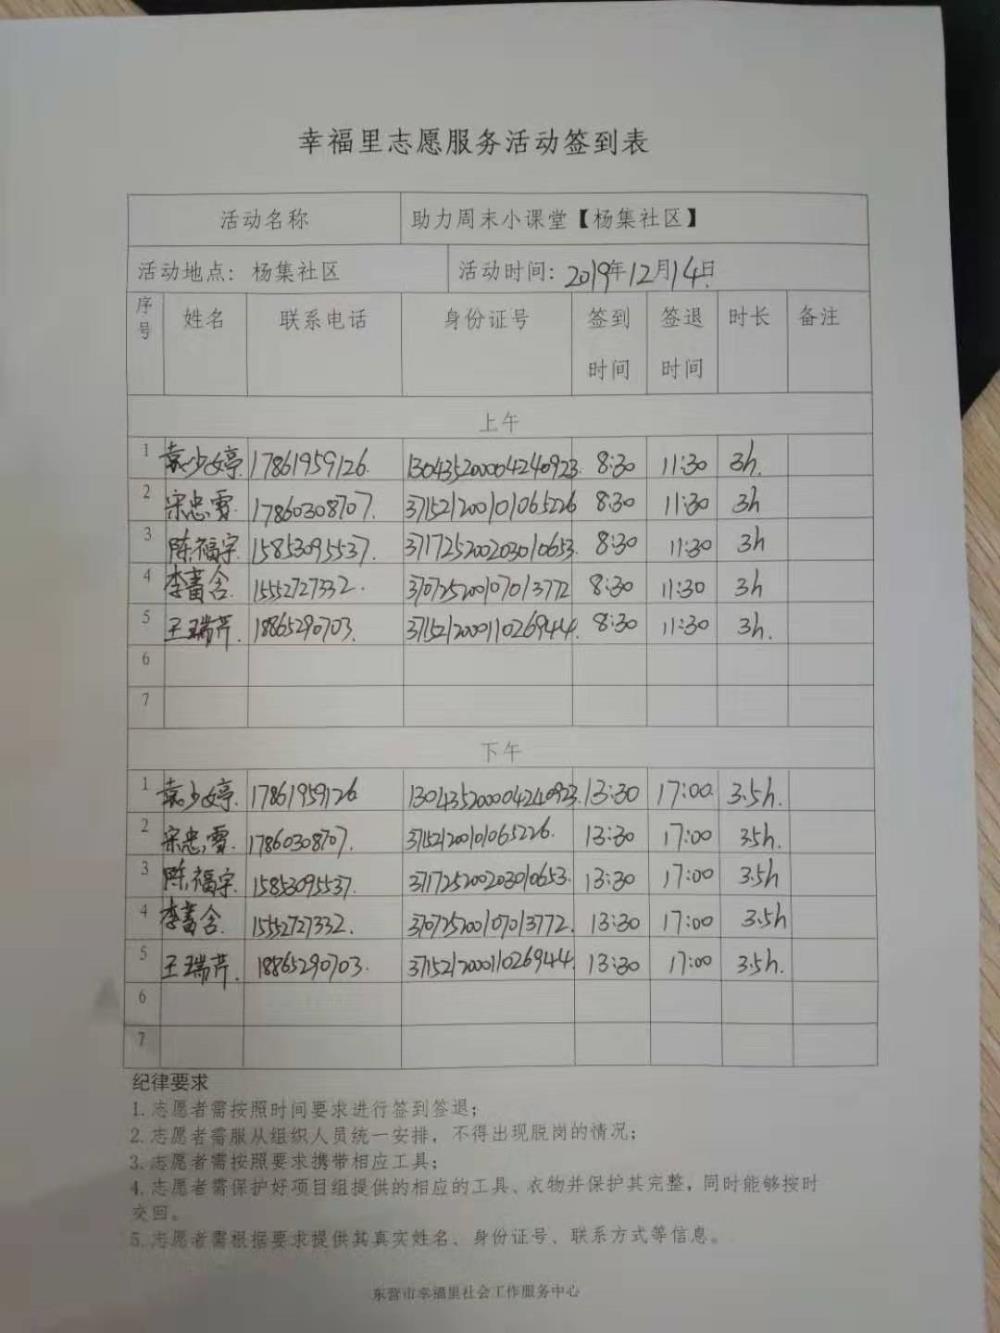 幸福里志愿服务活动签到表
活动名称 助力周末小课堂【杨集社区】
活动地点：杨集社区 活动时间：2019年12月14日
序号 姓名 联系电话 身份证号 签到时间 签退时间 时长 备注
上午
1 袁少婷 17861959126 130435200004240923 8:30 11:30 3h
2 宋忠雪 17860308707 371521200101065226 8:30 11:30 3h
3 陈福宇 15853095537 371725200203010653 8:30 11:30 3h
4 李 含 15552727332 370725200107013772 8:30 11:30 3h
5 王瑞芹 18865290703 371521200011026944 8:30 11:30 3h
6
7
下午
1 袁少婷 17861959126 130435200004240923 13:30 17:00 3.5h
2 宋忠雪 17860308707 371521200101065226 13:30 17:00 3.5h
3 陈福宇 15853095537 371725200203010653 13:30 17:00 3.5h
4 李 含 15552727332 370725200107013772 13:30 17:00 3.5h
5 王瑞芹 18865290703 371521200011026944 13:30 17:00 3.5h
6
7
纪律要求
1.志愿者需按照时间要求进行签到签退；
2.志愿者需服从组织人员统一安排，不得出现脱岗的情况；
3.志愿者需按照要求携带相应工具；
4.志愿者需保护好项目组提供的相应的工具、衣物并保护其完整，同时能够按时
交回。
5.志愿者需根据要求提供其真实姓名、身份证号、联系方式等信息。
东营市幸福里社会工作服务中心